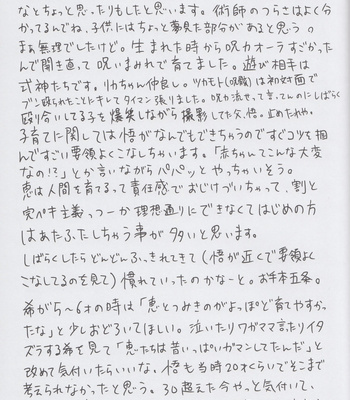 なとちょっと思ったりもしたと思います。術師のつらさはよく分
かってるんでね、子供にはちょっと夢見た部分があると思う。
まぁ無理でしたけど。生まれた時から呪力オーラすごかった
んで開き直って呪いまみれで育てました。遊び相手は
式神たちです。リカちゃん仲良し。ツカモト(呪骸)は初対面で
ブン殴られたことにキレてタイマン張りました。呪力流せって言ってんのにしばらく
殴り合いしてる子を爆笑しながら撮影してた父、悟。止めたれや。
子育てに関しては悟がなんでもできちゃうのですぐコツを掴
んですごい要領よくこなしちゃいます。「赤ちゃんてこんな大変
なの!?」とか言いながらパパッとやっちゃいそう。
恵は人間を育てるって責任感でおじけづいちゃって、割と
完ペキ主義っつーか理想通りにできなくてはじめの方
はあたふたしちゃう事が多いと思います。
しばらくしたらどんどんふっきれてきて(悟が近くで要領よく
こなしてるのを見て)慣れていったのかなーと。お手本五条。
希が5~6才の時は「恵とつみきのがよっぽど育てやすかっ
たな」と少しおどろいてほしい。泣いたりワガママ言ったりイタ
ズラする希を見て「恵たちは昔いっぱいガマンしてたんだ」と
改めて気付いたらいいな、悟も当時20才くらいでそこまで
考えられなかったと思う。30超えた今やっと気付いて、